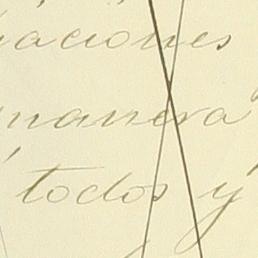 aciones
manera
todos y